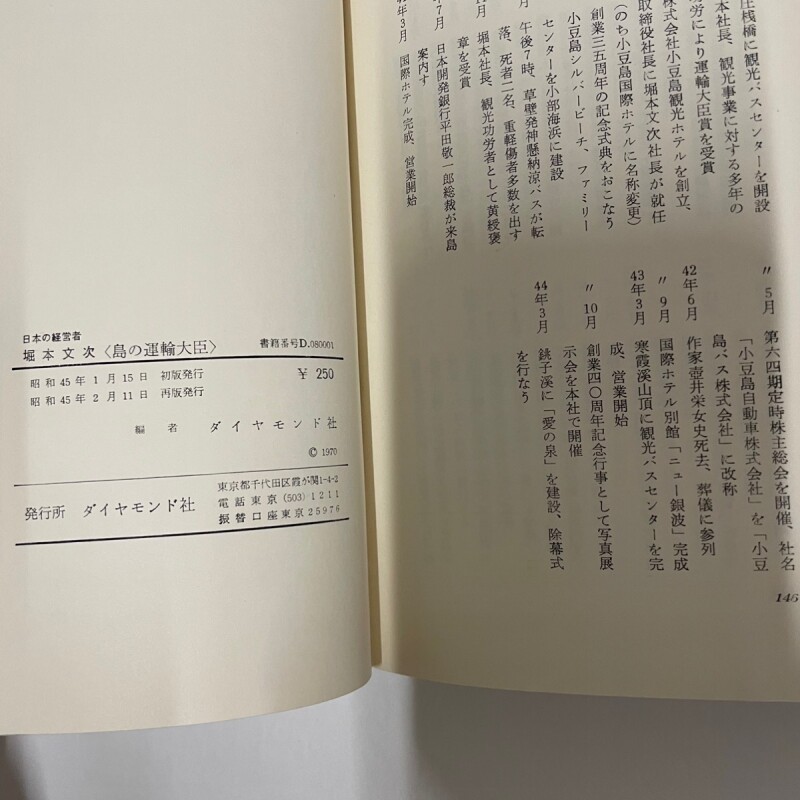 庄桟橋に観光バスセンターを開設
本社長、観光事業に対する多年の
功労により運輸大臣賞を受賞
株式会社小豆島観光ホテルを創立、
取締役社長に堀本文次社長が就任
(のち小豆島国際ホテルに名称変更)
創業三五周年の記念式典をおこなう
小豆島シルバービーチ、ファミリー
センターを小部海浜に建設
月 午後7時、草壁発神懸納涼バスが転
落、死者二名、重軽傷者多数を出す
月 堀本社長、観光功労者として黄綬褒
章を受賞
年7月 日本開発銀行平田敬一郎総裁が来島
案内す
年3月 国際ホテル完成、営業開始
〃 5月 第六四期定時株主総会を開催、社名
「小豆島自動車株式会社」を「小豆
島バス株式会社」に改称
42年6月 作家壺井栄女史死去、葬儀に参列
〃 9月 国際ホテル別館「ニュー銀波」完成
43年3月 寒霞渓山頂に観光バスセンターを完
成、営業開始
〃 10月 創業四〇周年記念行事として写真展
示会を本社で開催
44年3月 銚子渓に「愛の泉」を建設、除幕式
を行なう
146
日本の経営者
堀本文次〈島の運輸大臣〉 書籍番号D.080001
昭和45年1月15日 初版発行 ¥250
昭和45年2月11日 再版発行
編者 ダイヤモンド社
©1970
発行所 ダイヤモンド社
東京都千代田区霞が関1-4-2
電話東京(503)1211
振替口座東京25976